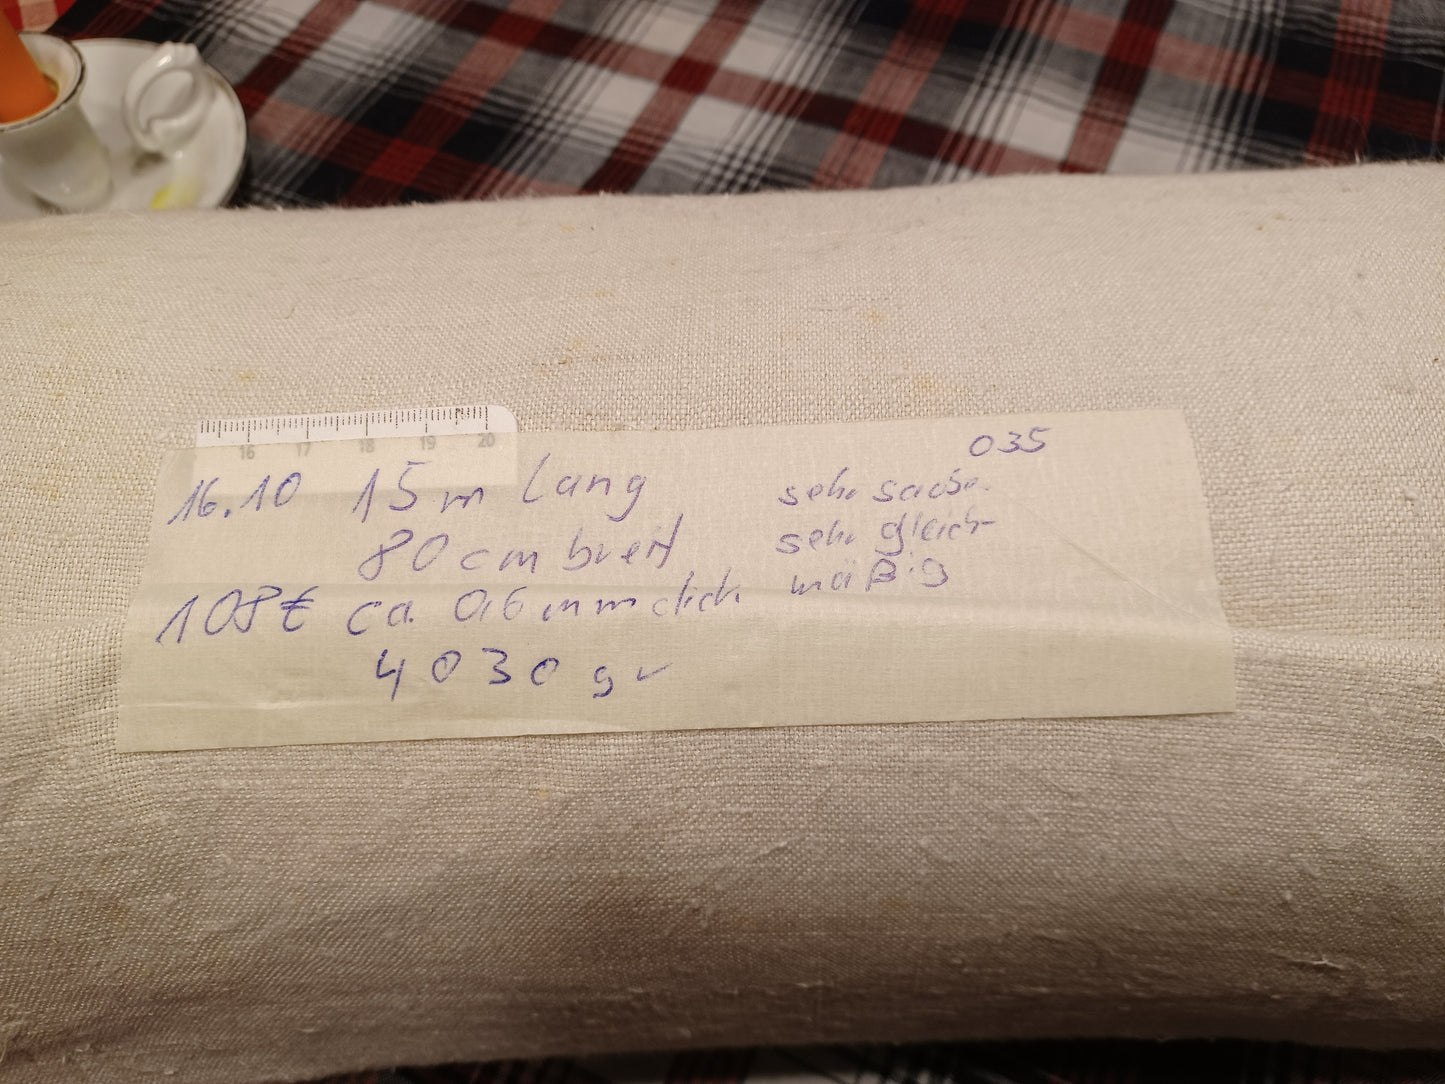 16 17 18 19 20
035
16.10 15 m lang
80 cm breit
108€ ca. 0,6 mm dick
4030 gr
sehr
sehr gleich-
mäßig